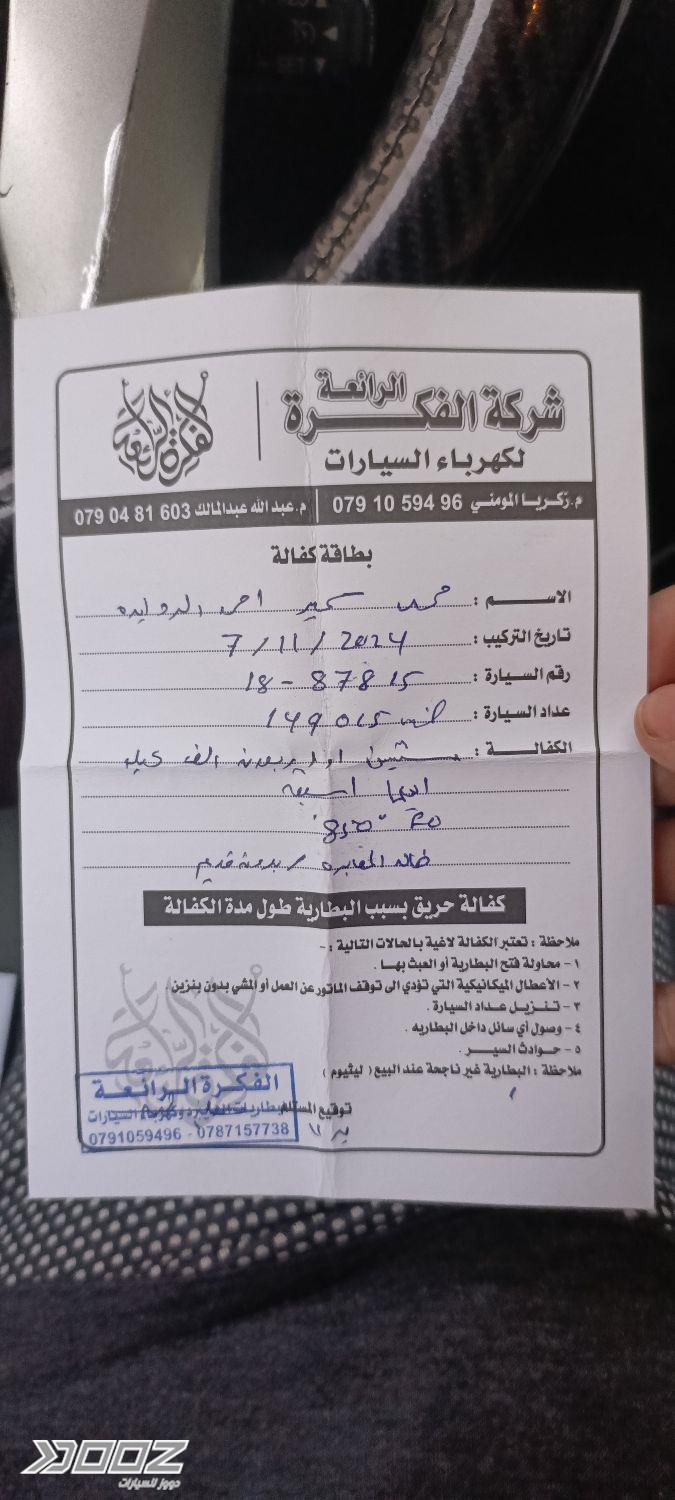 الرائعة
شركة الفكرة
لكهرباء السيارات
الفكرة الرائعة
م.زكريا المومني 96 594 10 079 | م.عبد الله عبدالمالك 603 81 04 079
بطاقة كفالة
الاسم : محمد احمد
تاريخ التركيب : 7/11/2024
رقم السيارة : 18-87815
عداد السيارة : 149015
الكفالة : سنتين او اربعين الف كيلو
ايهما اسبق
"850"
كفالة حريق بسبب البطارية طول مدة الكفالة
ملاحظة : تعتبر الكفالة لاغية بالحالات التالية :-
١- محاولة فتح البطارية أو العبث بها .
٢- الأعطال الميكانيكية التي تؤدي الى توقف الماتور عن العمل أو المشي بدون بنزين .
٣- تنزيل عداد السيارة .
٤- وصول أي سائل داخل البطاريه .
٥- حوادث السير .
ملاحظة : البطارية غير ناجحة عند البيع ( ليثيوم )
توقيع
الفكرة الرائعة
السيارات
0791059496 - 0787157738
DOOZ
دووز للسيارات